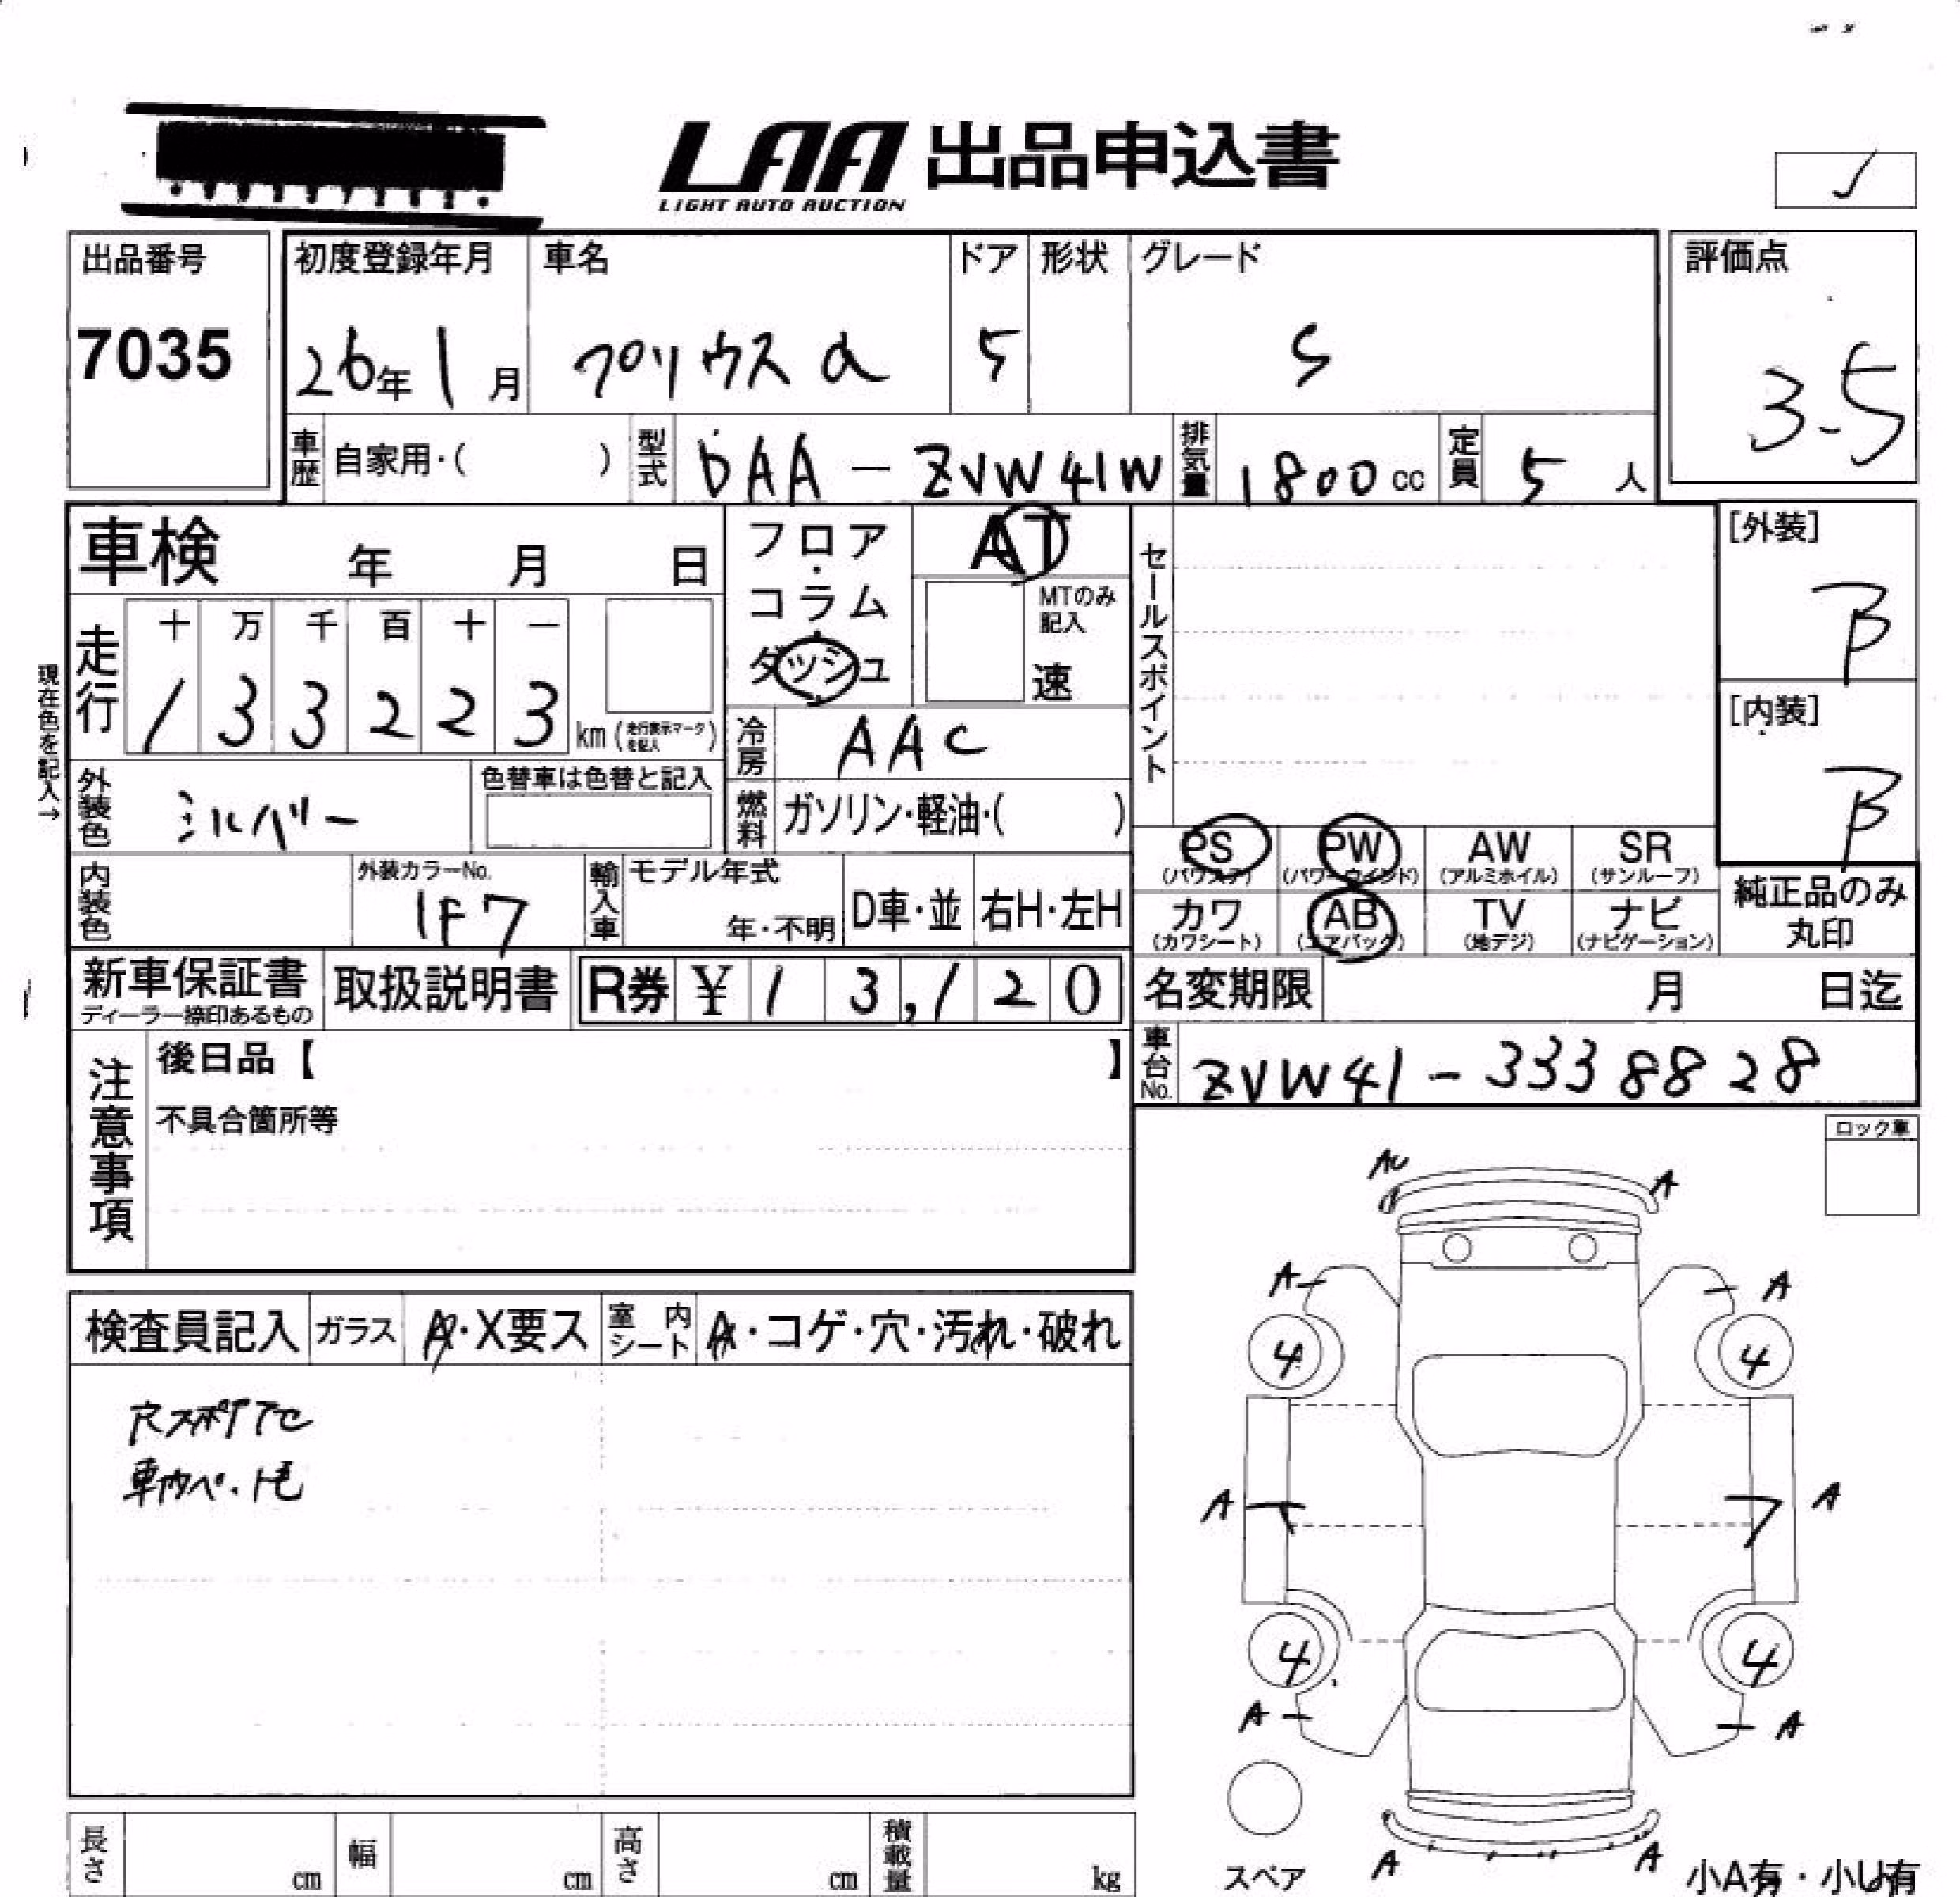 LAA 出品申込書
LIGHT AUTO AUCTION
出品番号
7035
初度登録年月
26年 1月
車名
プリウスα
ドア
5
形状
グレード
S
評価点
3.5
車歴 自家用・( )
型式 DAA-ZVW41W
排気量 1800cc
定員 5人
車検 年 月 日
フロア・コラム・ダッシュ
AT
MTのみ記入
速
セールスポイント
[外装]
B
[内装]
B
現在色を記入→
走行
十 万 千 百 十 一
1 3 3 2 2 3 km (走行表示マークを記入)
冷房 AAC
外装色 シルバー
色替車は色替と記入
燃料 ガソリン・軽油・( )
PS (パワステ)
PW (パワーウインド)
AW (アルミホイル)
SR (サンルーフ)
カワ (カワシート)
AB (エアバック)
TV (地デジ)
ナビ (ナビゲーション)
純正品のみ丸印
内装色
外装カラーNo.
1F7
輸入車
モデル年式
年・不明
D車・並
右H・左H
新車保証書
ディーラー捺印あるもの
取扱説明書
R券 ¥ 13,120
名変期限 月 日迄
車台No. ZVW41-3338828
注意事項
後日品【 】
不具合箇所等
ロック車
検査員記入
ガラス A・X要ス
室内シート A・コゲ・穴・汚れ・破れ
A
A
A
4
4
A
A
4
4
A
A
A
A
スペア
小A有・小U有
長さ cm
幅 cm
高さ cm
積載量 kg